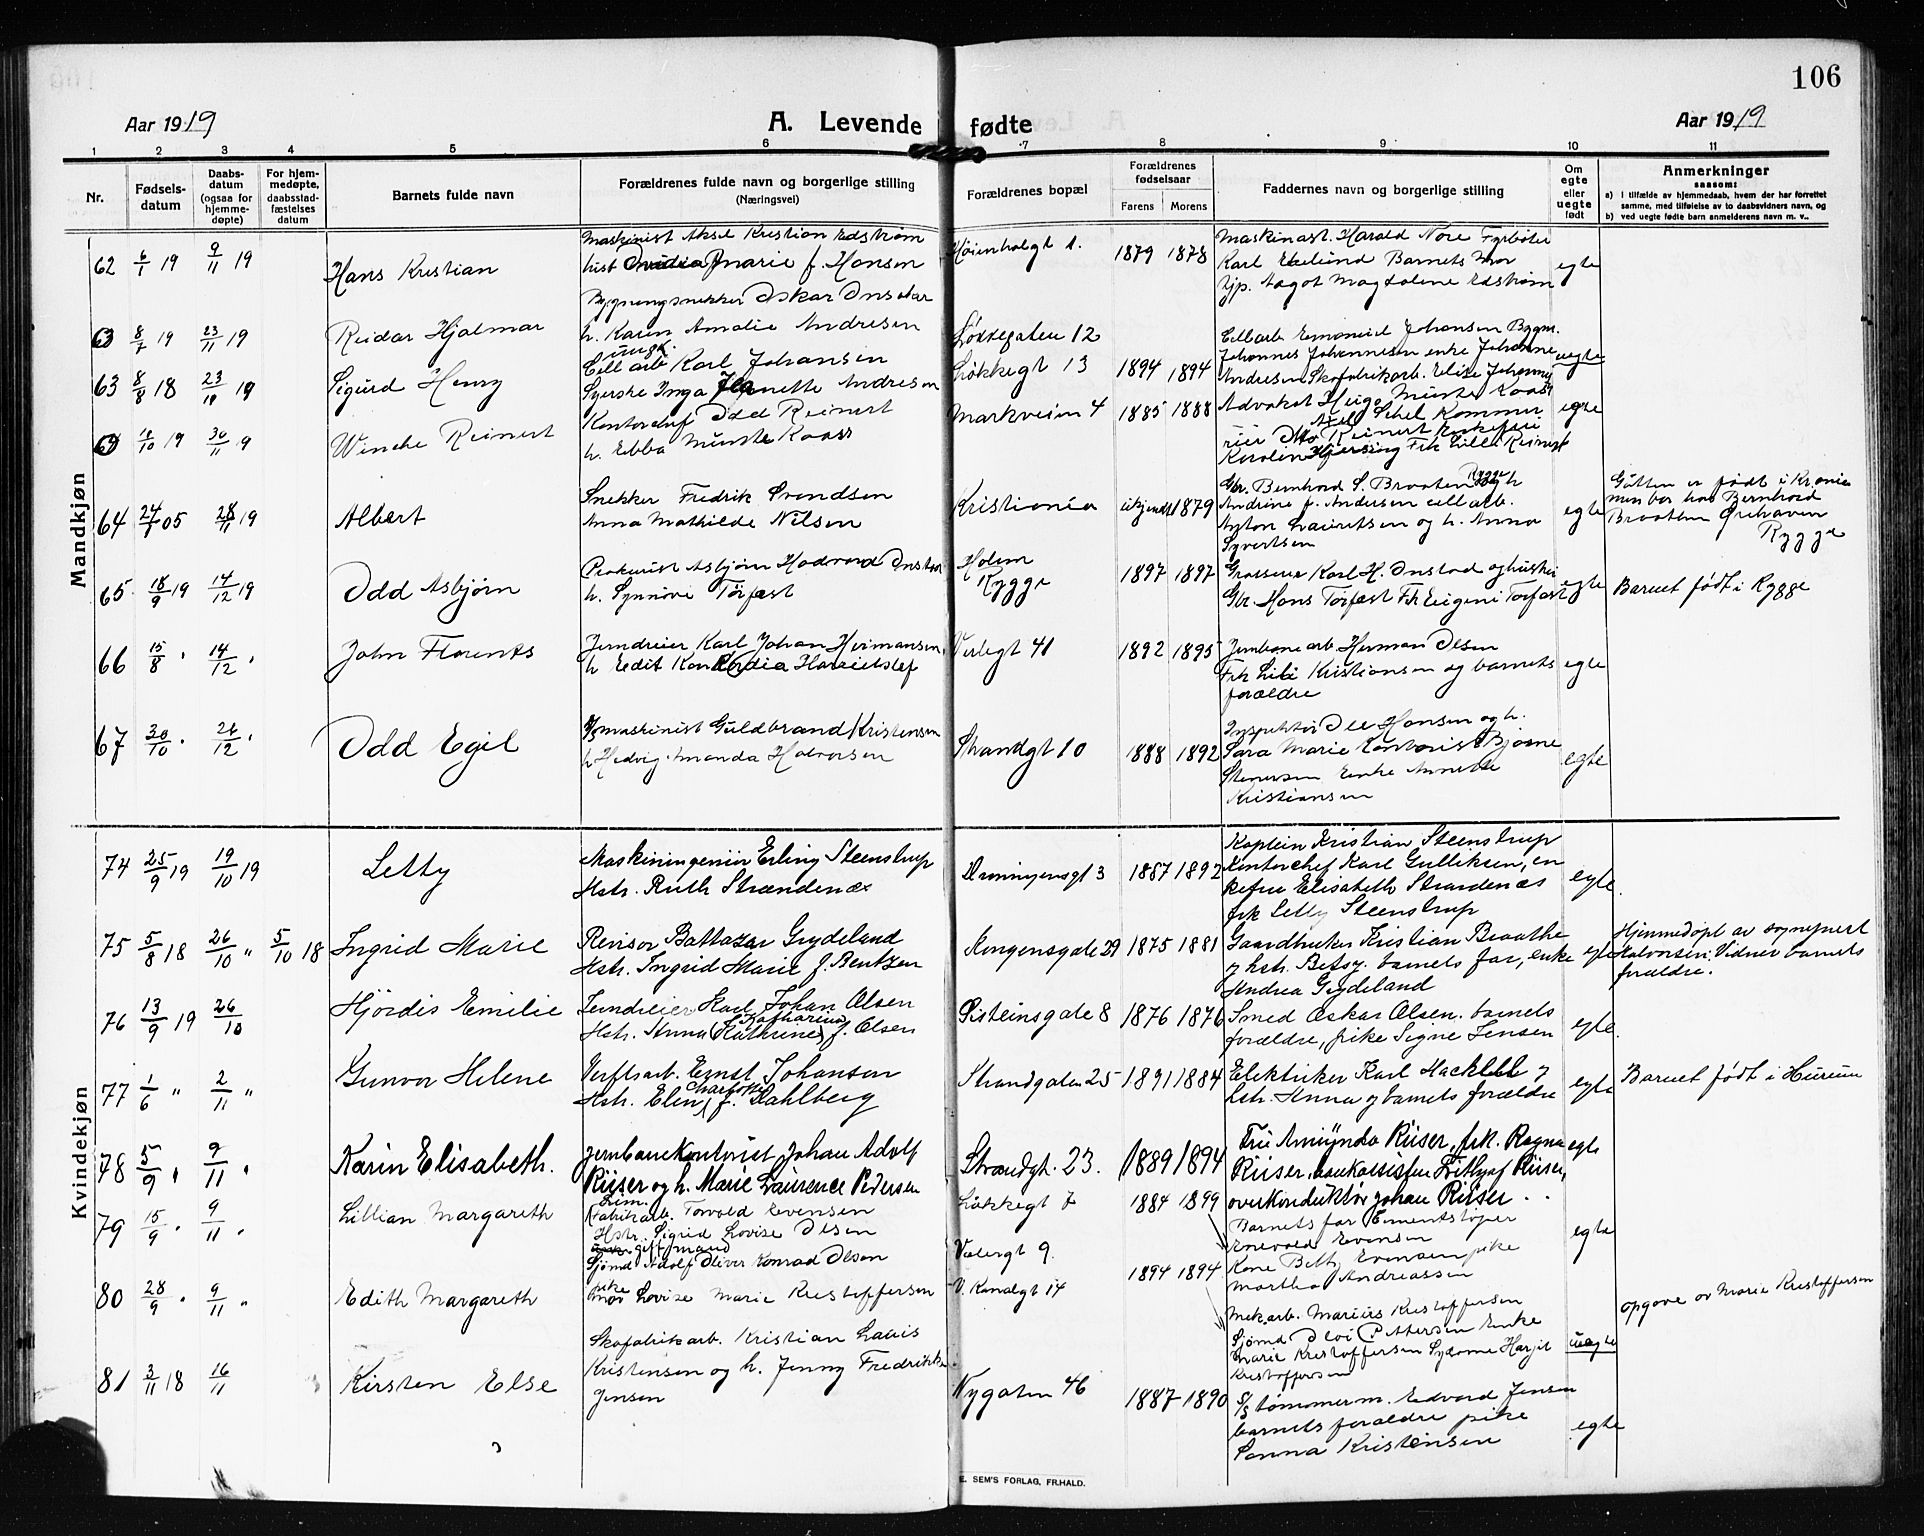 106
Aar 1919
A. Levende fødte
Aar 1919
1 2 3 4 5 6 7 8 9 10 11
Nr.
Fødsels-
datum
Daabs-
datum
(ogsaa for
hjemme-
døpte)
For hjem-
medøpte,
daabsstad-
fæstelses
datum
Barnets fulde navn
Forældrenes fulde navn og borgerlige stilling
(Næringsvei)
Forældrenes bopæl
Forældrenes
fødselsaar
Farens Morens
Faddernes navn og borgerlige stilling
Om
egte
eller
uegte
født
Anmerkninger
saasom:
a) i tilfælde av hjemmedaab, hvem der har forrettet
samme, med tilføielse av to daabsvidners navn, og
b) ved uegte fødte barn anmelderens navn m. v..
Mandkjøn
62 6/1 19 9/11 19
Hans Kristian
Maskinist Aksel Kristian Edstrøm
Marie f. Hansen
1879 1878
Maskinast. Harald Nore Fyrbøter
Karl Ekelund Barnets mor
Aagot Magdalene Edstrøm
egte
8/7 19 23/11 19
Reidar Hjalmar
Bygningssnekker Oskar
h. Karen Amalie Andresen
12
63 8/8 18 23/11 19
Sigurd Henry
ungk.
Cell arb Karl Johansen
Syerske Inga Jeanette Andresen
Løkkegt 13
1894 1894
Cellarb Emanuel Johansen
Johannes Johannesen enke Johanne
Andresen Skofabrikarb. Elise
uegte
18/10 19 30/11 9
Wincke Reinert
Kontorchef Odd Reinert
h. Ebba Münster Kaas
Markveien 4
1885 1888
Advokat Heigo Münster Kaas
Otto Reinert Enkefrue
Karoline Frk Lilli Reinert
egte
64 24/7 05 28/11 19
Albert
Snekker Fredrik Svendsen
Anna Mathilde Nilsen
Kristiania
1879
Gbr. Bernhard S. Braaten Rygge
Andrine f. Andersen cellarb.
Anton Lauritsen og h. Anna
Syvertsen
egte
Gutten er født i Kr.ania
men bor hos Bernhard
Braathen Ørehaven
Rygge
65 18/9 19 14/12 19
Odd Asbjørn
Prokurist Asbjørn Hadvard Onstad
h. Synnøve Torfast
Rygge
1897 1897
Grosserer Karl H. Onstad og hustru
Gbr. Hans Torfast Frk Eugeni Torfast
egte
Barnet født i Rygge
66 15/8 14/12
John Florents
Jerndreier Karl Johan Hermansen
h Edit Konkordia
Verlegt 41
1892 1895
Jernbanearb Herman Olsen
Frk Lili Kristiansen og barnets
forældre
egte
67 30/10 26/12
Odd Egil
Maskinist Guldbrand Kristensen
h Hedvig Amanda Halvorsen
Strandgt 10
1888 1892
Inspektør Ole Hansen og h.
Sara Marie Kontorist Bjarne
Stenersen Enke Annette
Kristiansen
egte
Kvindekjøn
74 25/9 19 19/10 19
Letty
Maskiningeniør Erling Steenstrup
Hstr. Ruth Strandenæs
Dronningensgt 3
1887 1892
Kaptein Kristian Steenstrup
Kontorchef Karl Gulliksen, en
kefru Elisabeth Strandenæs
frk Letty Steenstrup
egte.
75 5/8 18 26/10 " 5/10 18
Ingrid Marie
Revisor Baltazar Grydeland
Hstr. Ingrid Marie f. Bentzen
Kongensgate 29
1875 1881
Gaardbruker Kristian Braathe
og hstr. Betsy. barnets far, enke
Andrea Grydeland
egte
Hjemmedøpt av sogneprest
Halvorsen: Vidner barnets
forældre.
76 13/9 19 26/10
Hjördis Emilie
Jerndreier Karl Johan Olsen
Katharina
Hstr. Anna (Kathrine) f. Olsen
Sisteinsgate 8
1876 1876
Smed Oskar Olsen. barnets
forældre, pike Signe Jensen
egte.
77 1/6 " 2/11 "
Gunvor Helene
Verftsarb. Ernst Johansen
Charlotte
Hstr. Elin f. Dahlberg
Strandgaten 25
1891 1884
Elektriker Karl
hstr. Anna og barnets forældre
egte
Barnet født i Hurum
78 5/9 9/11
Karin Elisabeth.
Jernbanekontorist Johan Adolf
Riiser og h. Marie Laurence Pedersen
Strandgt. 23.
1889 1894
Fru Amunda Riiser, frk. Ragna
Riiser, bankassistent Fritjof Riiser,
overkonduktør Johan Riiser
egte
79 15/9 9/11
Lillian Margareth
Lim.
Fabrikarb. Torvald Evensen
Hstr. Sigrid Lovise Olsen
Løkkegt 7
1884 1899
Barnets far Cementstøper
Enevold Evensen
Kone Betty Evensen pike
Martha Andreassen
egte
80 28/9 9/11 "
Edith Margareth
gift mand
Sjømd Adolf Oliver Konrad Olsen
pike
Lovise Marie Kristoffersen
Vælergt 9.
V. Kanalgt 14
1894 1894
Mek.arb. Marius Kristoffersen
Sjømd Olai Pettersen Enke
Marie Kristoffersen Sydame Harjit
Kristoffersen
uegte
opgave av Marie Kristoffersen
81 3/11 18 16/11
Kirsten Else
Skofabrikarb. Kristian Lauis
Kristensen og h. Jenny Fredrikke
Jensen
Nygaten 46
1887 1890
Tømmerm. Edvard Jensen
barnets forældre pike
Sanna Kristensen
egte
E. SEM'S FORLAG, FR.HALD.